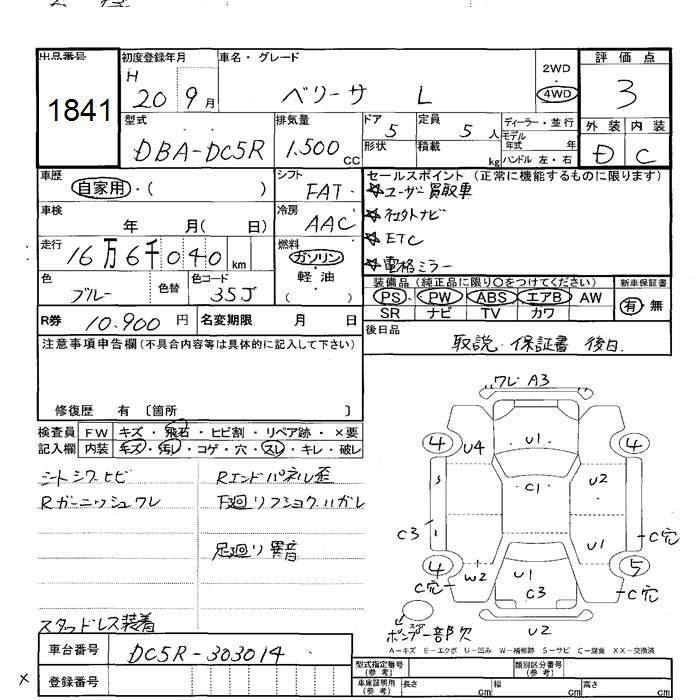 出品番号
1841
初度登録年月
H 20 9月
車名・グレード
ベリーサ L
2WD
4WD
評価点
3
外装 内装
D C
型式
DBA-DC5R
排気量
1.500cc
ドア 5
形状
定員 5人
積載 kg
ディーラー・並行
モデル年式 年
ハンドル 左・右
車歴
自家用・( )
シフト
FAT
車検
年 月( 日)
冷房
AAC
走行
16万6千040km
燃料
ガソリン
軽・油
( )
色
ブルー
色替
色コード
35J
セールスポイント(正常に機能するものに限ります)
☆ユーザー買取車
☆社外ナビ
☆ETC
☆電格ミラー
装備品(純正品に限り○をつけてください)
PS PW ABS エアB AW
SR ナビ TV カワ
新車保証書
有 無
R券 10.900円
名変期限 月 日
後日品
取説・保証書 後日.
注意事項申告欄(不具合内容等は具体的に記入して下さい)
修復歴 有〔箇所 〕
検査員記入欄
FW キズ・飛石・ヒビ割・リペア跡・×要
内装 キズ・汚れ・コゲ・穴・スレ・キレ・破レ
シートシワヒビ
Rガーニッシュワレ
Rエンドパネル歪
下廻リフショクハガレ
足廻り異音
スタッドレス装着
ワレ A3
4 U4 U1 4
C1 U2
C3 U1 C穴
4 C穴 W2 U1 C3 5 C穴
バンパー一部欠
U2
A-キズ E-エクボ U-凹み W-補修跡 S-サビ C-腐食 XX-交換済
車台番号
DC5R-303014
登録番号
型式指定番号(参考)
類別区分番号(参考)
車庫証明用(参考) 長さ cm 幅 cm 高さ cm